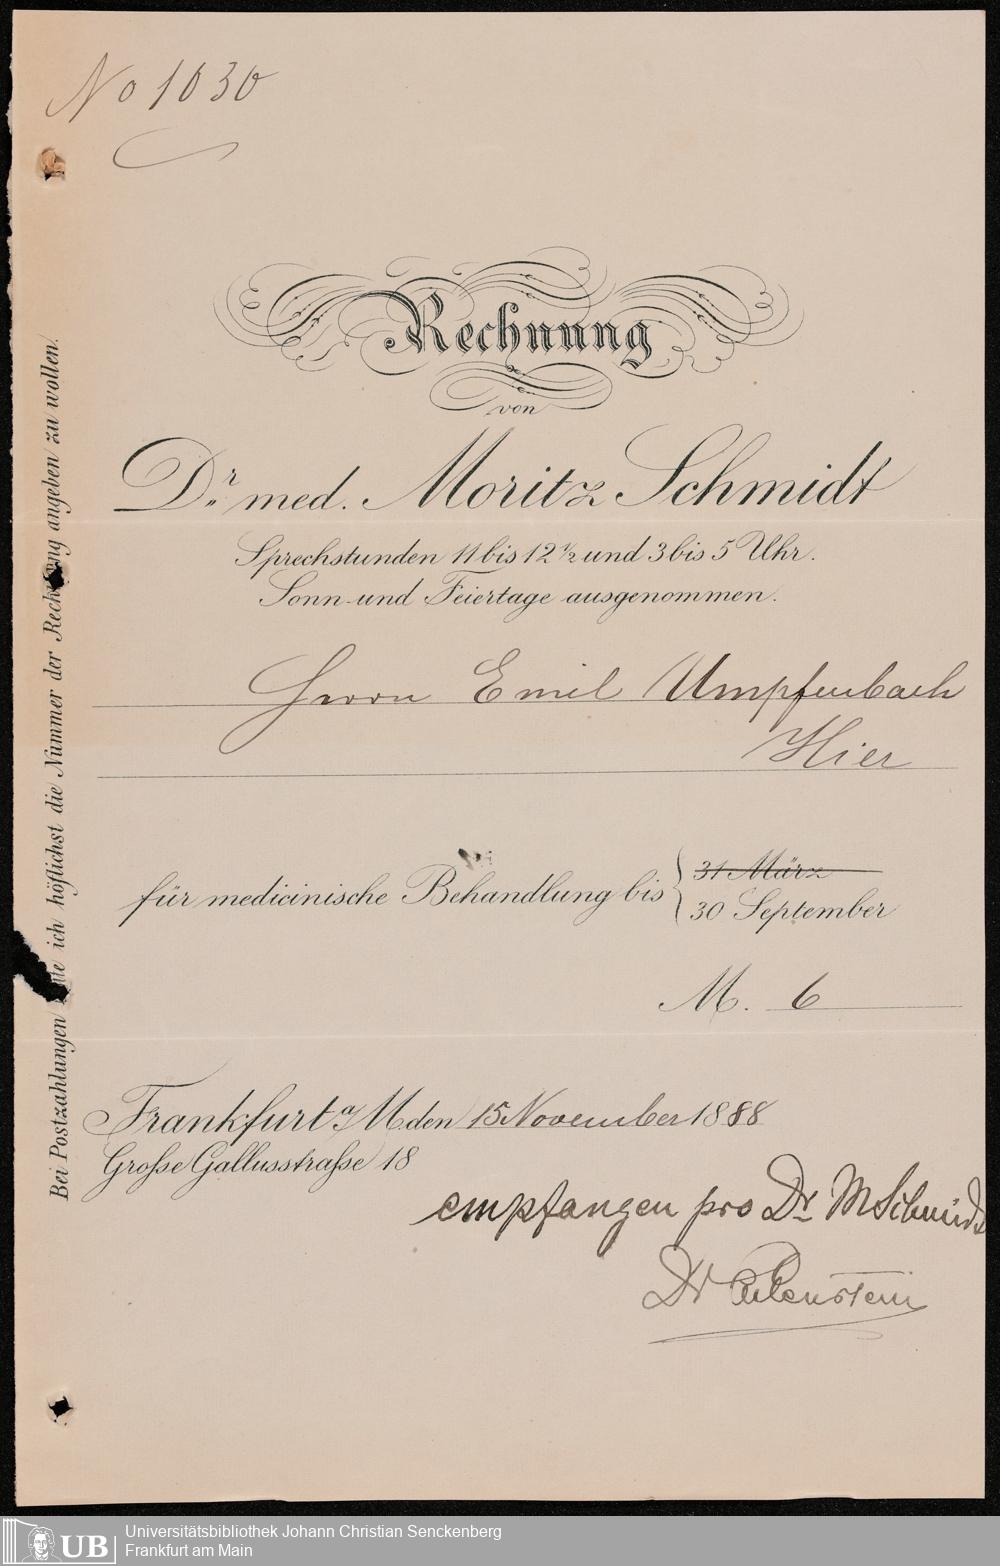 No 1030
Rechnung
von
Dr. med. Moritz Schmidt
Sprechstunden 11 bis 12 ½ und 3 bis 5 Uhr.
Sonn- und Feiertage ausgenommen.
Herrn Emil Umpfenbach
Hier
für medicinische Behandlung bis
31 März
30 September
M. 6
Frankfurt a/M den 15 November 1888
Große Gallusstraße 18
empfangen pro Dr M Schmidt
Dr
Bei Postzahlungen bitte ich höflichst die Nummer der Rechnung angeben zu wollen.
UB
Universitätsbibliothek Johann Christian Senckenberg
Frankfurt am Main